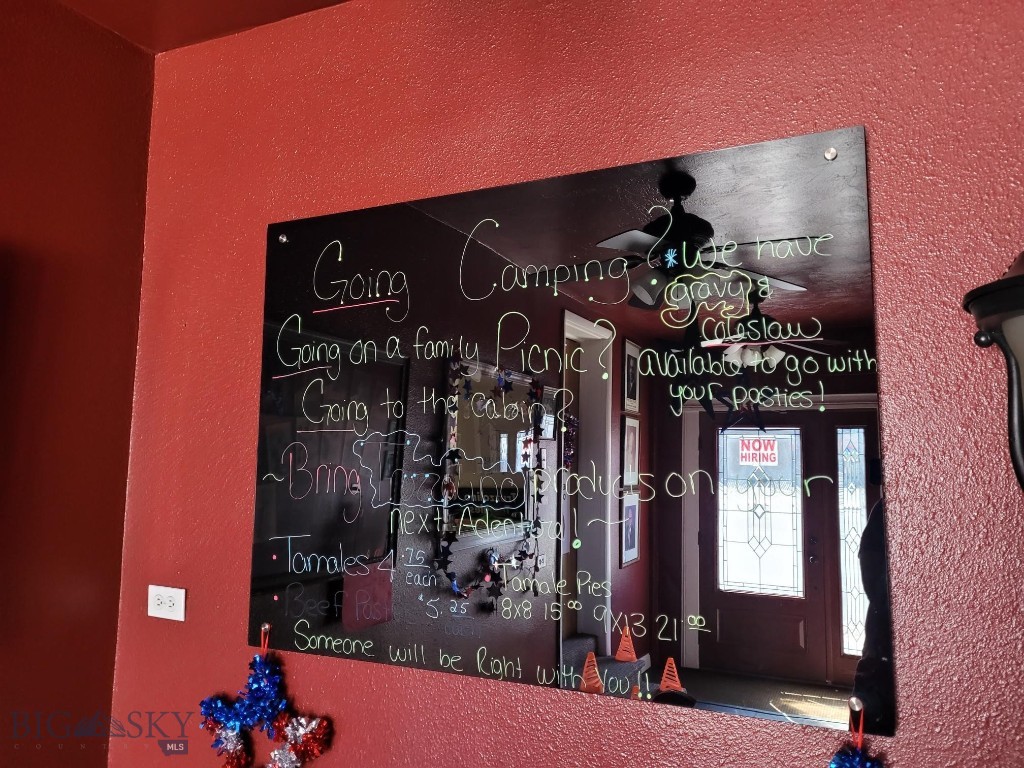 Going Camping?
Going on a family Picnic?
Going to the cabin?
~Bring products on your
next Adenture!~
*We have
gravy &
coleslaw
available to go with
your pasties!
• Tamales 4.75 each
• Beef $5.25
Tamale Pies
8x8 15.00 9x13 21.00
Someone will be Right with You!!
NOW
HIRING
BIG SKY
COUNTRY
MLS